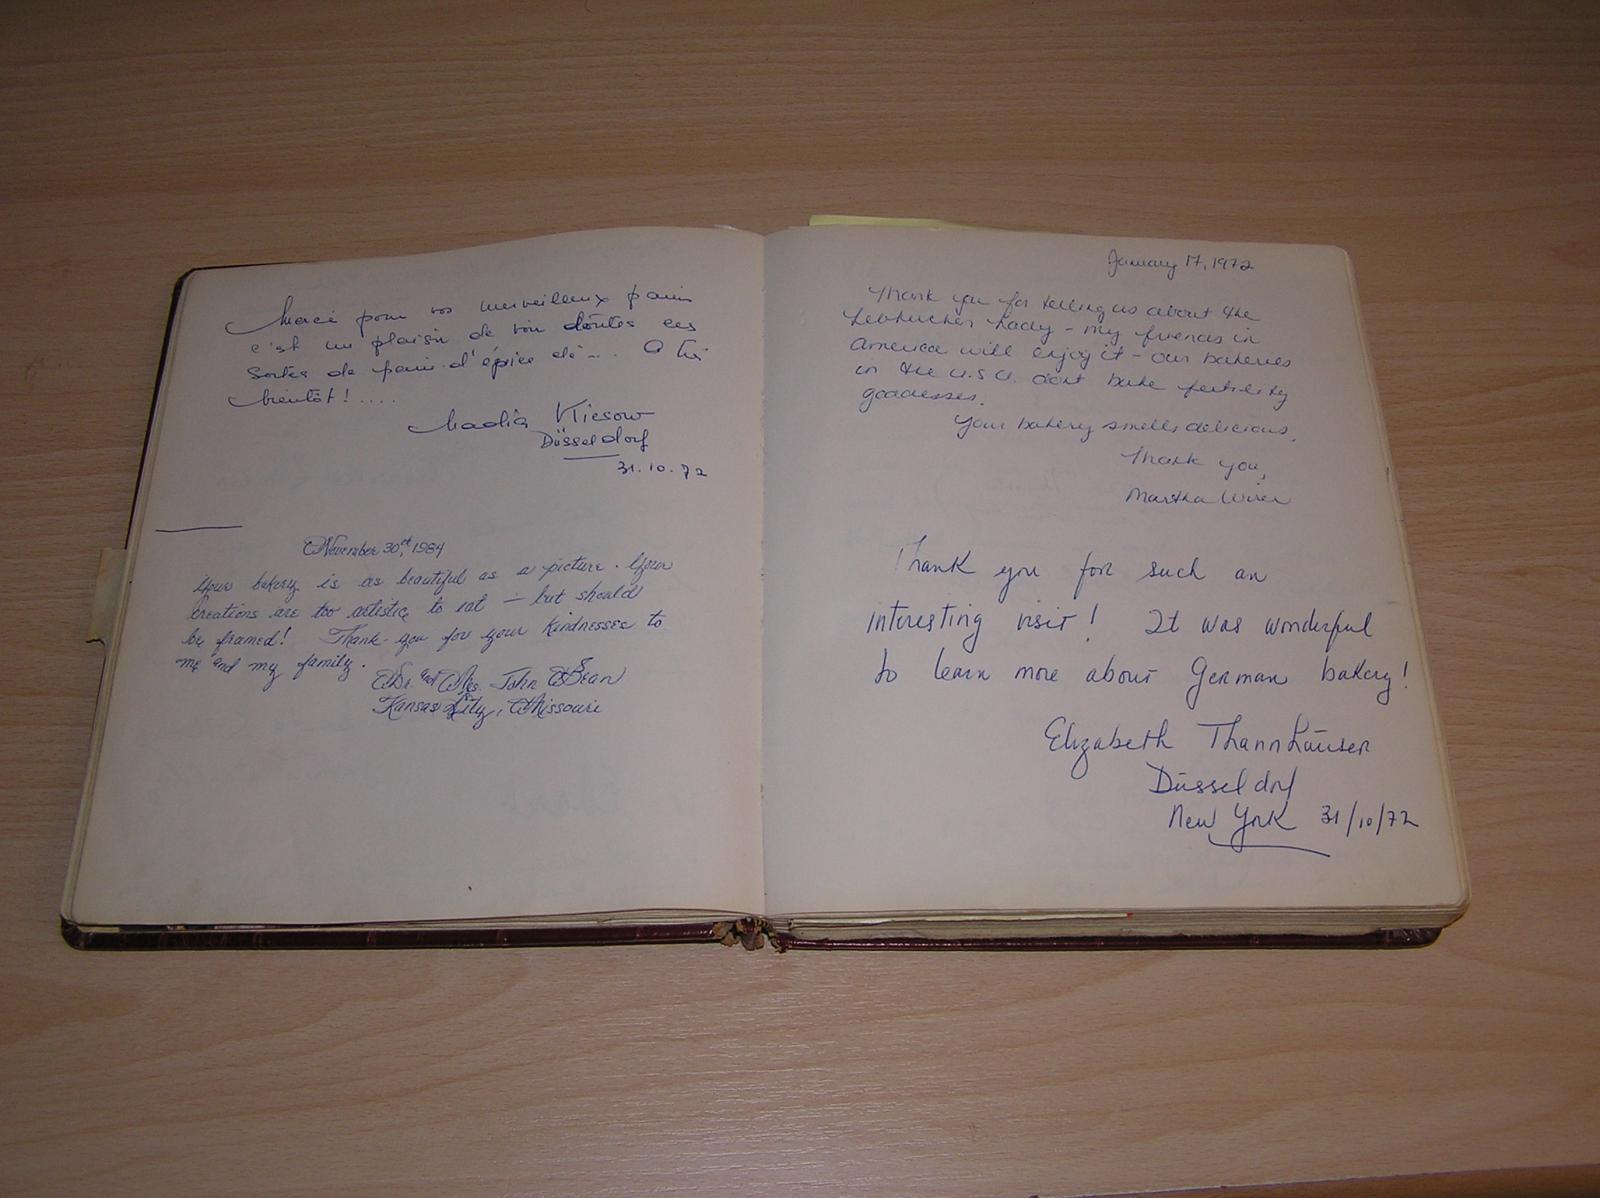 Merci pour vos merveilleux pains
c'est un plaisir de voir toutes ces
sortes de pain d'épice
bientôt!....
Nadia Kiesow
Düsseldorf
31.10.72
November 30th, 1984
Your bakery is as beautiful as a picture. Your
creations are too artistic to eat - but should
be framed! Thank you for your kindnesses to
me and my family.
Dr. and Mrs. John Bean
Kansas City, Missouri
January 17, 1972
Thank you for telling us about the
Lebkuchen Lady - my friends in
America will enjoy it - our bakeries
in the U.S.A. don't bake fertility
goddesses.
Your bakery smells delicious.
Thank you,
Martha
Thank you for such an
interesting visit! It was wonderful
to learn more about German bakery!
Elizabeth Thannhäuser
Düsseldorf
New York 31/10/72